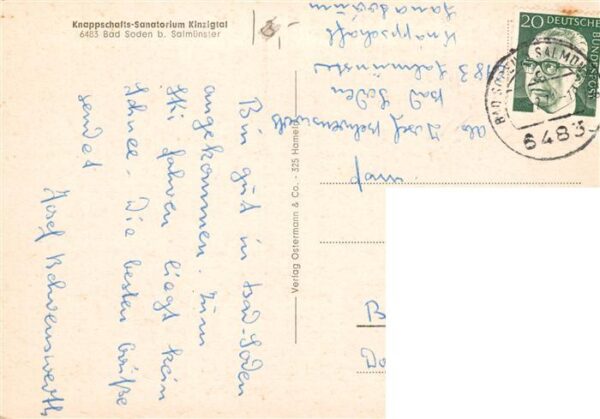 Knappschafts-Sanatorium Kinzigtal
6483 Bad Soden b. Salmünster
Bin gut in Bad-Soden
angekommen. Zum
Ski fahren liegt kein
Schnee. Die besten Grüße
sendet
Josef Schwenswerth
Verlag Ostermann & Co. - 325 Hameln
20 DEUTSCHE
BUNDESPOST
BAD SODEN SALMÜ
6483
abs Josef
Bad Soden
6483 Salmünster
Knappschaft
Sanatorium